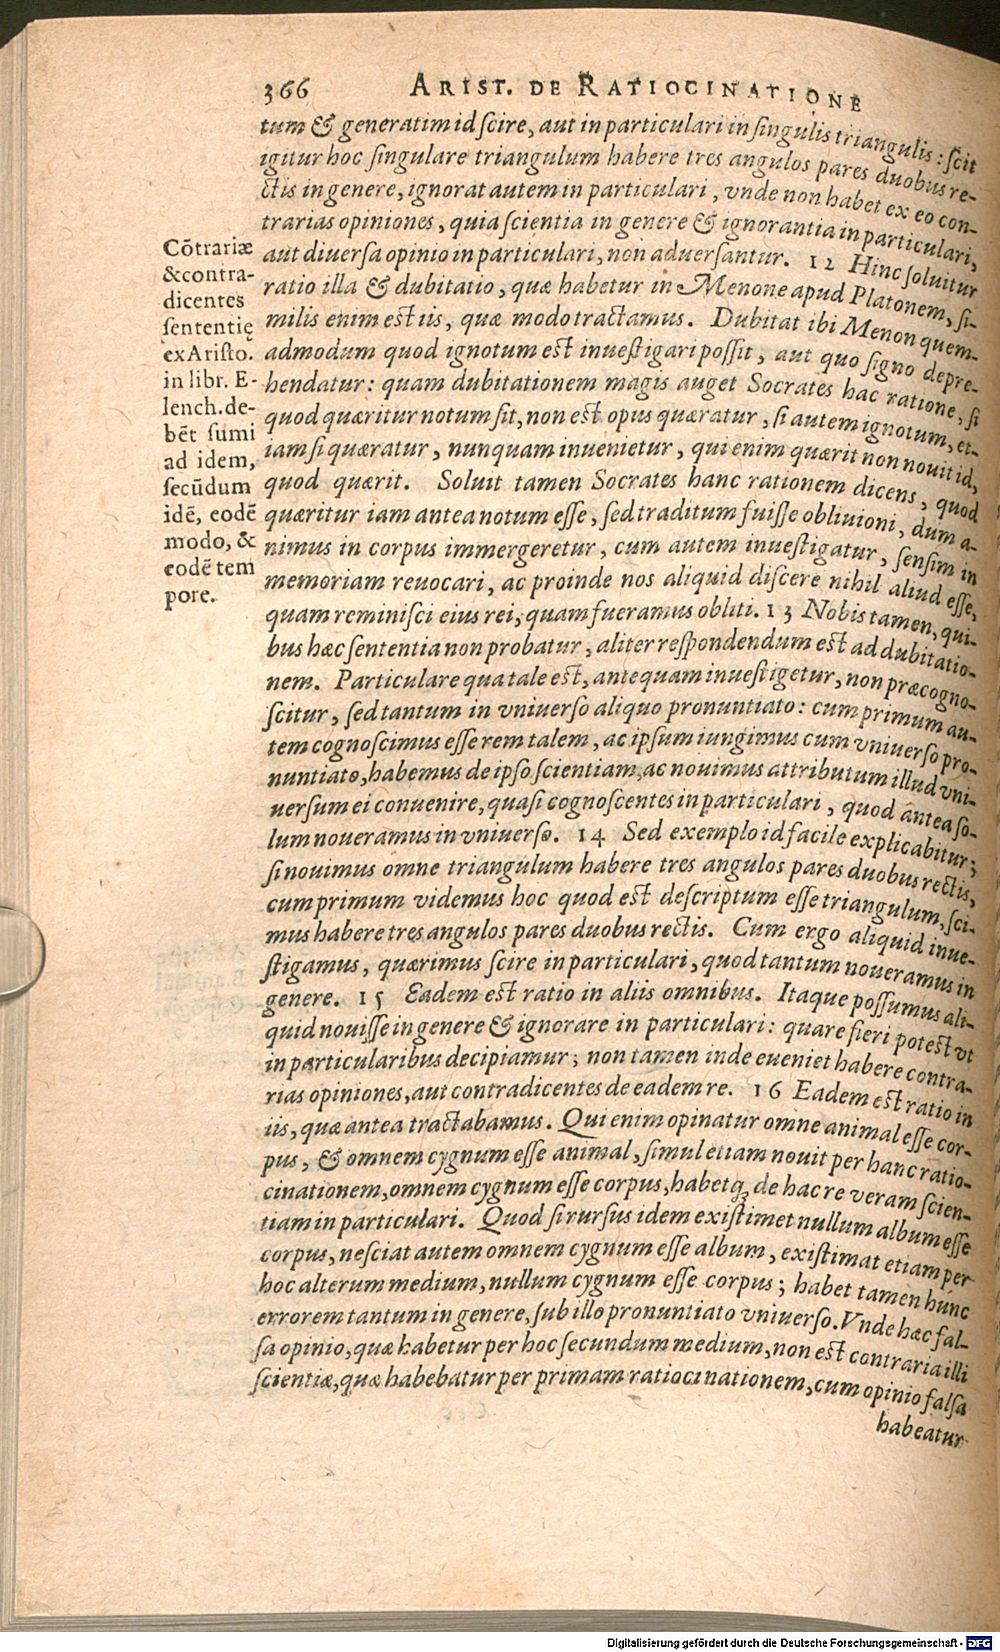 366 ARIST. DE RATIOCINATIONE
tum & generatim id scire, aut in particulari in singulis triangulis: scit
igitur hoc singulare triangulum habere tres angulos pares duobus re-
ctis in genere, ignorat autem in particulari, vnde non habet ex eo con-
trarias opiniones, quia scientia in genere & ignorantia in particulari,
aut diuersa opinio in particulari, non aduersantur. 12 Hinc soluitur
ratio illa & dubitatio, quæ habetur in Menone apud Platonem, si-
milis enim est iis, quæ modo tractamus. Dubitat ibi Menon quem-
admodum quod ignotum est inuestigari possit, aut quo signo depre-
hendatur: quam dubitationem magis auget Socrates hac ratione, si
quod quæritur notum sit, non est opus quæratur, si autem ignotum, et-
iam si quæratur, nunquam inuenietur, qui enim quærit non nouit id,
quod quærit. Soluit tamen Socrates hanc rationem dicens, quod
quæritur iam antea notum esse, sed traditum fuisse obliuioni, dum a-
nimus in corpus immergeretur, cum autem inuestigatur, sensim in
memoriam reuocari, ac proinde nos aliquid discere nihil aliud esse,
quam reminisci eius rei, quam fueramus obliti. 13 Nobis tamen, qui-
bus hæc sententia non probatur, aliter respondendum est ad dubitatio-
nem. Particulare qua tale est, antequam inuestigetur, non præcogno-
scitur, sed tantum in vniuerso aliquo pronuntiato: cum primum au-
tem cognoscimus esse rem talem, ac ipsum iungimus cum vniuerso pro-
nuntiato, habemus de ipso scientiam, ac nouimus attributum illud vni-
uersum ei conuenire, quasi cognoscentes in particulari, quod ántea so-
lum noueramus in vniuerso. 14 Sed exemplo id facile explicabitur;
si nouimus omne triangulum habere tres angulos pares duobus rectis,
cum primum videmus hoc quod est descriptum esse triangulum, sci-
mus habere tres angulos pares duobus rectis. Cum ergo aliquid inue-
stigamus, quærimus scire in particulari, quod tantum noueramus in
genere. 15 Eadem est ratio in aliis omnibus. Itaque possumus ali-
quid nouisse in genere & ignorare in particulari: quare fieri potest vt
in particularibus decipiamur; non tamen inde eueniet habere contra-
rias opiniones, aut contradicentes de eadem re. 16 Eadem est ratio in
iis, quæ antea tractabamus. Qui enim opinatur omne animal esse cor-
pus, & omnem cygnum esse animal, simul etiam nouit per hanc ratio-
cinationem, omnem cygnum esse corpus, habetq; de hac re veram scien-
tiam in particulari. Quod si rursus idem existimet nullum album esse
corpus, nesciat autem omnem cygnum esse album, existimat etiam per
hoc alterum medium, nullum cygnum esse corpus; habet tamen húnc
errorem tantum in genere, sub illo pronuntiato vniuerso. Vnde hæc fal-
sa opinio, quæ habetur per hoc secundum medium, non est contraria illi
scientiæ, quæ habebatur per primam ratiocinationem, cum opinio falsa
habeatur
Cōtrariæ
& contra-
dicentes
sententię
ex Aristo.
in libr. E-
lench. de-
bēt sumi
ad idem,
secūdum
idē, eodē
modo, &
eodē tem
pore.
Digitalisierung gefördert durch die Deutsche Forschungsgemeinschaft - DFG